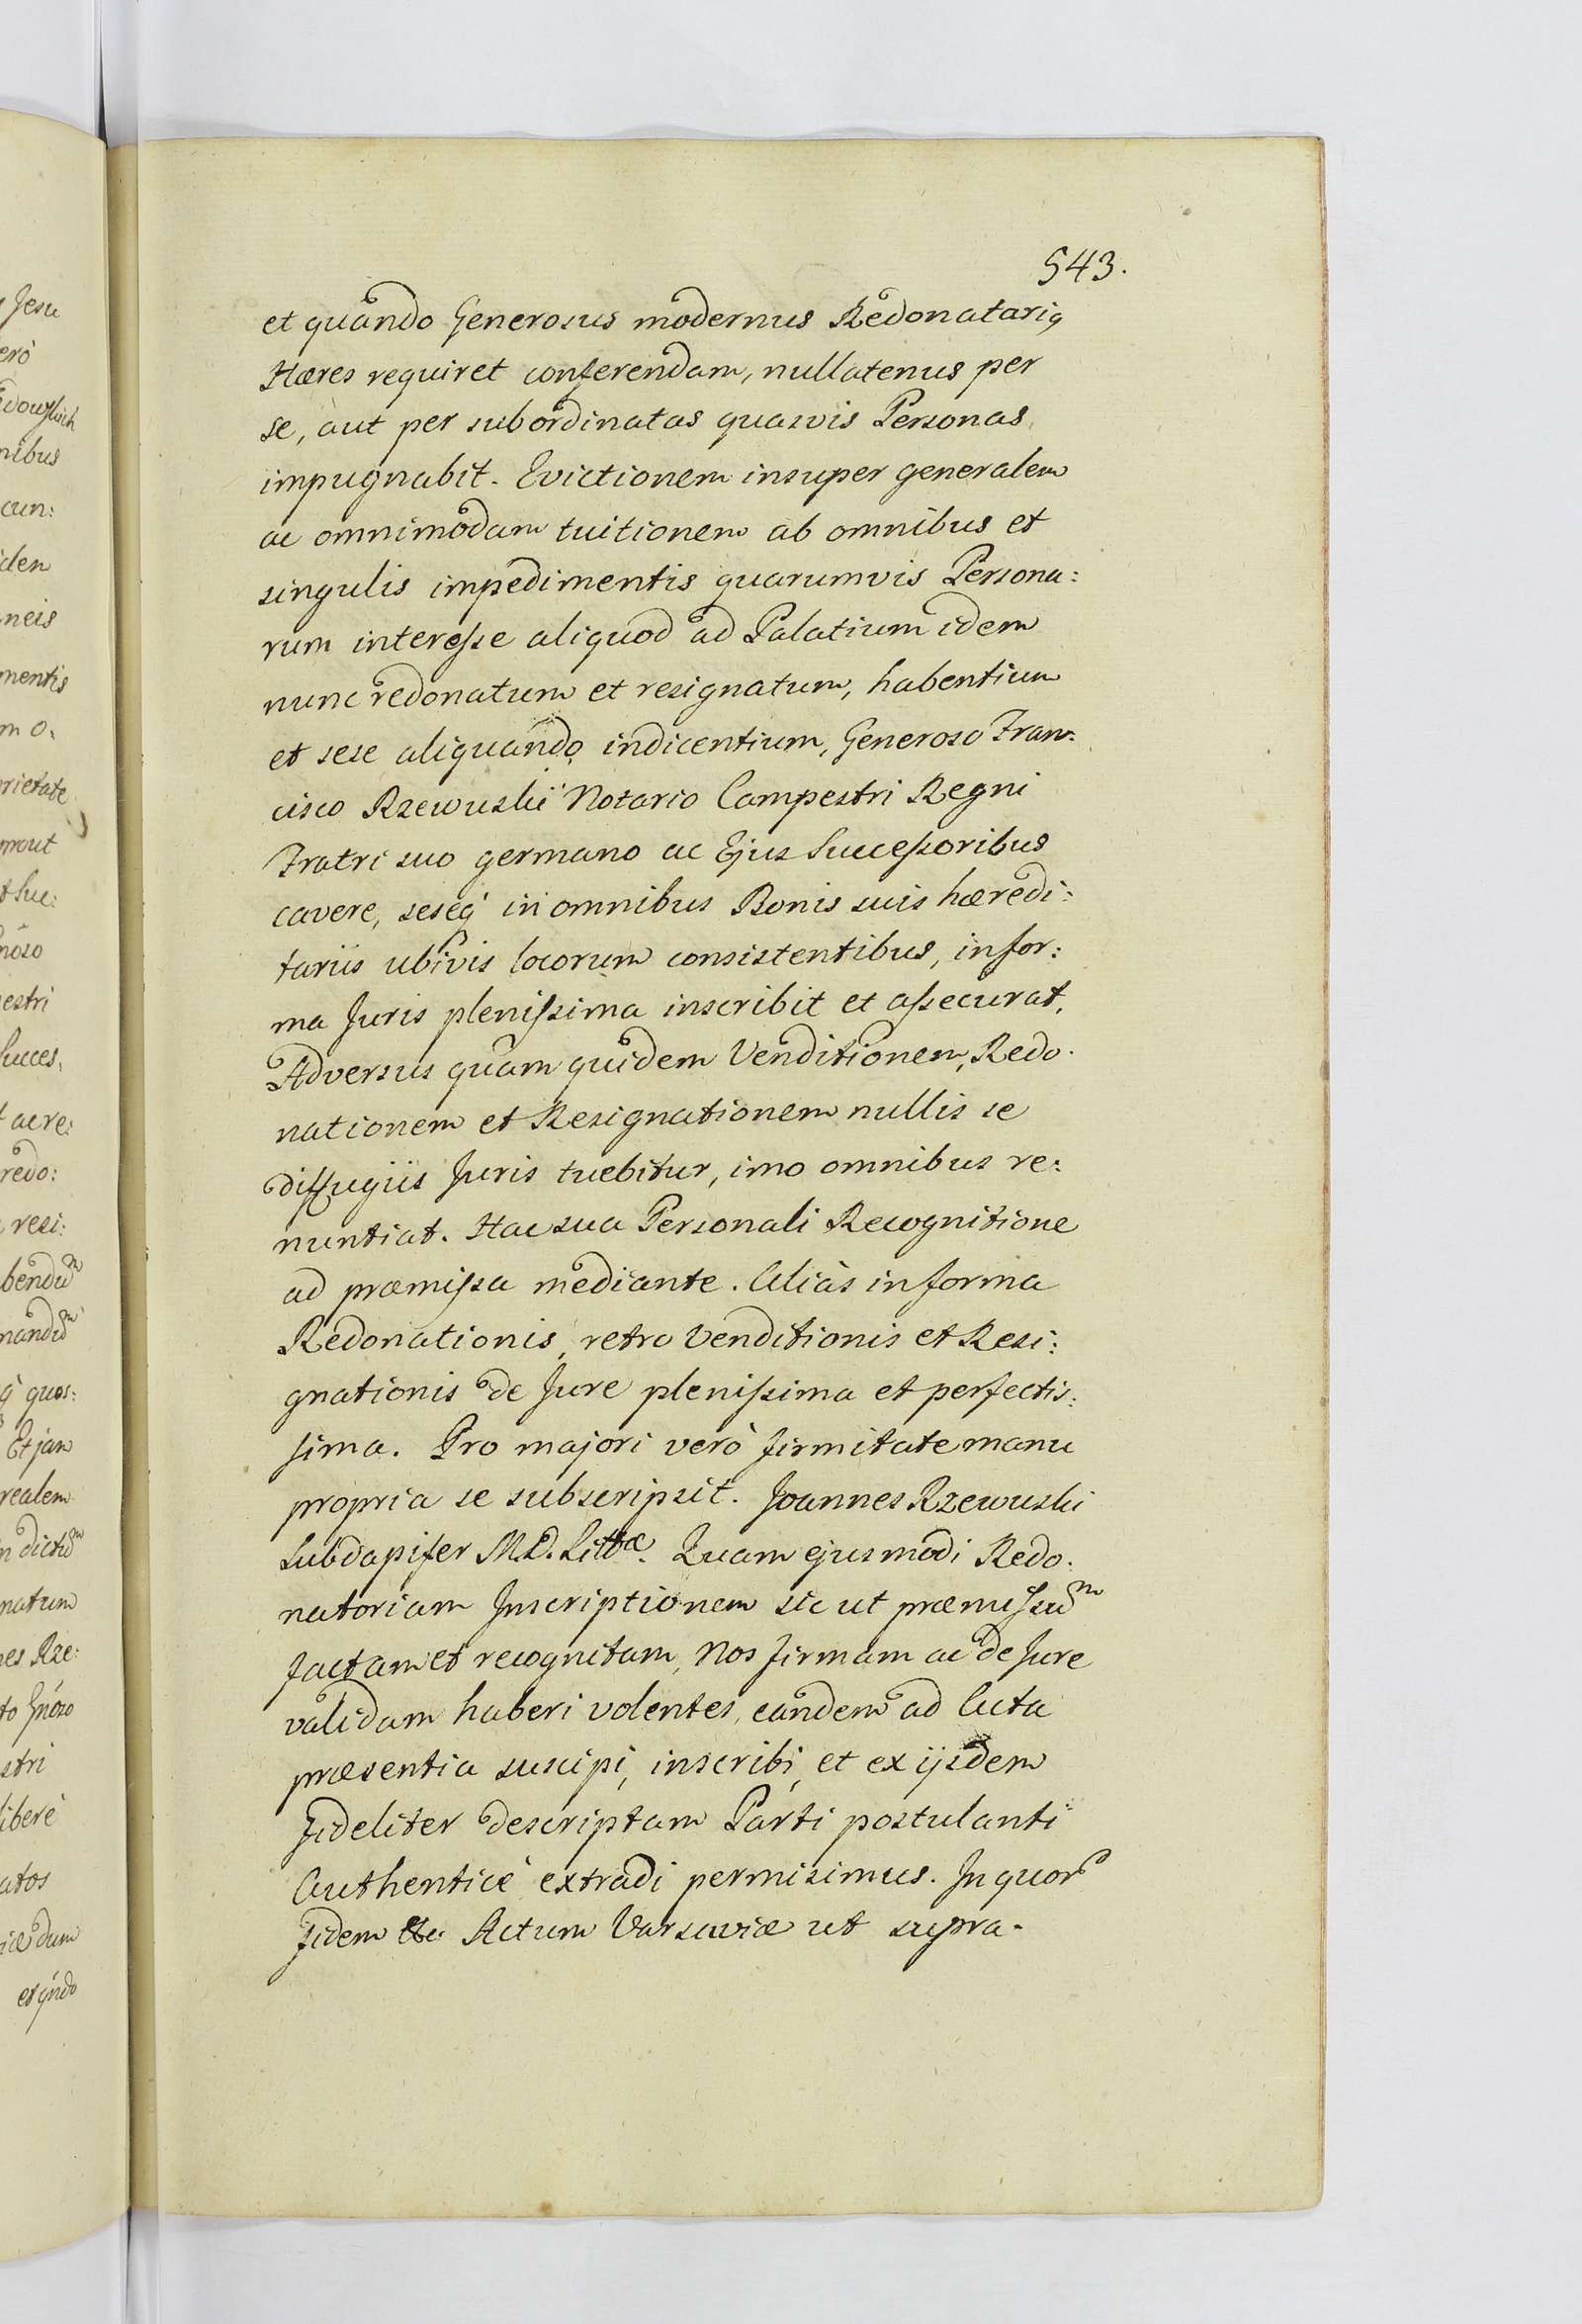 543.
et quando Generosus modernus Redonatariq
Hæres requiret conferendam, nullatenus per
se, aut per subordinatas quasvis Personas
impugnabit. Evictionem insuper generalem
ac omnimodam tuitionem ab omnibus et
singulis impedimentis quarumvis Persona:
rum interesse aliquod ad Palatium idem
nunc redonatum et resignatum, habentium
et sese aliquando indicentium, Generoso Fran:
cisco Rzewuskii Notario Campestri Regni
Fratri suo germano ac Ejus Successoribus
cavere, seseq́ in omnibus Bonis suis hæredi:
tariis ubivis locorum consistentibus, in for:
ma Juris plenissima inscribit et assecurat.
Adversus quam quidem Venditionem, Redo.
nationem et Resignationem nullis se
diffugiis Juris tuebitur, imo omnibus re:
nuntiat. Hac sua Personali Recognitione
ad præmissa mediante. Aliàs in forma
Redonationis, retro Venditionis et Resi:
gnationis de Jure plenissima et perfectis:
sima. Pro majori verò firmitate manu
propria se subscripsit. Joannes Rzewuski
Subdapifer M.D. Littæ. Quam ejusmodi Redo.
natoriam Inscriptionem sic ut præmissum
factam et recognitam, Nos firmam ac de Jure
validam haberi volentes, eandem ad Acta
præsentia suscipi, inscribi, et ex ijsdem
fideliter descriptam Parti postulanti
Authenticè extradi permisimus. In quor
fidem etc. Actum Varsaviæ ut supra.
Jesu
erò
nibus
cun:
iden
neis
mentis
m o.
rietate
prout
t Suc:
nóso
estri
Succes,
t ac re:
redo:
resi:
bendum
mandum
q́ quos:
Et jam
realem
n dictum
natum
nes Rze:
to Gnóso
stri
liberè
atos
iæ dum
et qńdo